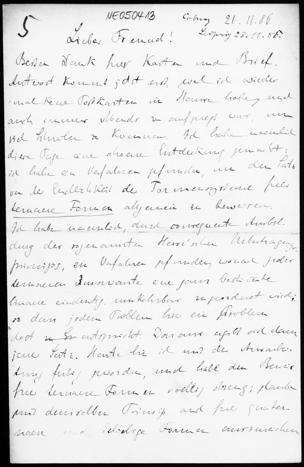 5
NE050413
21.11.86
Lieber Freund!
Besten Dank für Karten und Brief.
Antwort kommt jetzt erst, weil ich wieder
mal keine Postkarten im Hause habe und
auch immer Abends zu war, um
viel schreiben zu können. Ich habe nämlich
diese Tage eine Entdeckung gemacht:
ich habe ein Verfahren gefunden, um den Satz
von der Endlichkeit der Formensysteme für
ternäre Formen allgemein zu beweisen.
Ich habe nämlich, durch consequente Ausbil-
dung des sogenannten Übertragungs-
princips, ein Verfahren gefunden, wonach jeder
ternären Invariante eine ganz bestimmte
binäre eindeutig umkehrbar zugeordnet wird,
so dass jedem Problem hier ein Problem
dort entspricht. Daraus ergibt sich dann
jener Satz. Heute bin ich mit der Ausarbei-
tung fertig geworden, und habe den Beweis
für ternäre Formen völlig streng; glaube
mit demselben Princip auch für quater-
näre und beliebige Formen auszureichen